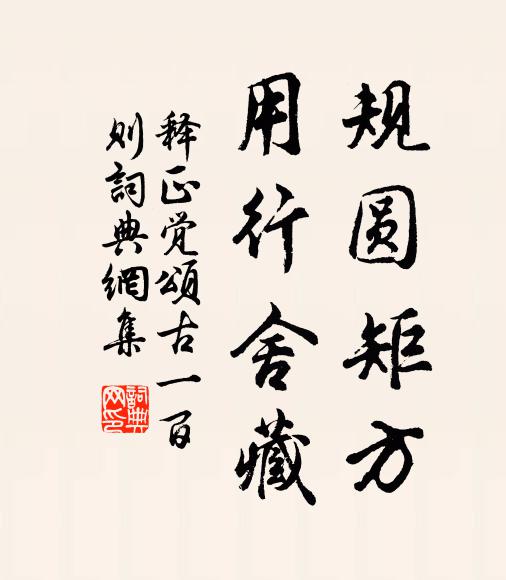 规圆矩方
用行舍藏
释正觉颂古一百
则词典網集
詞典
网印